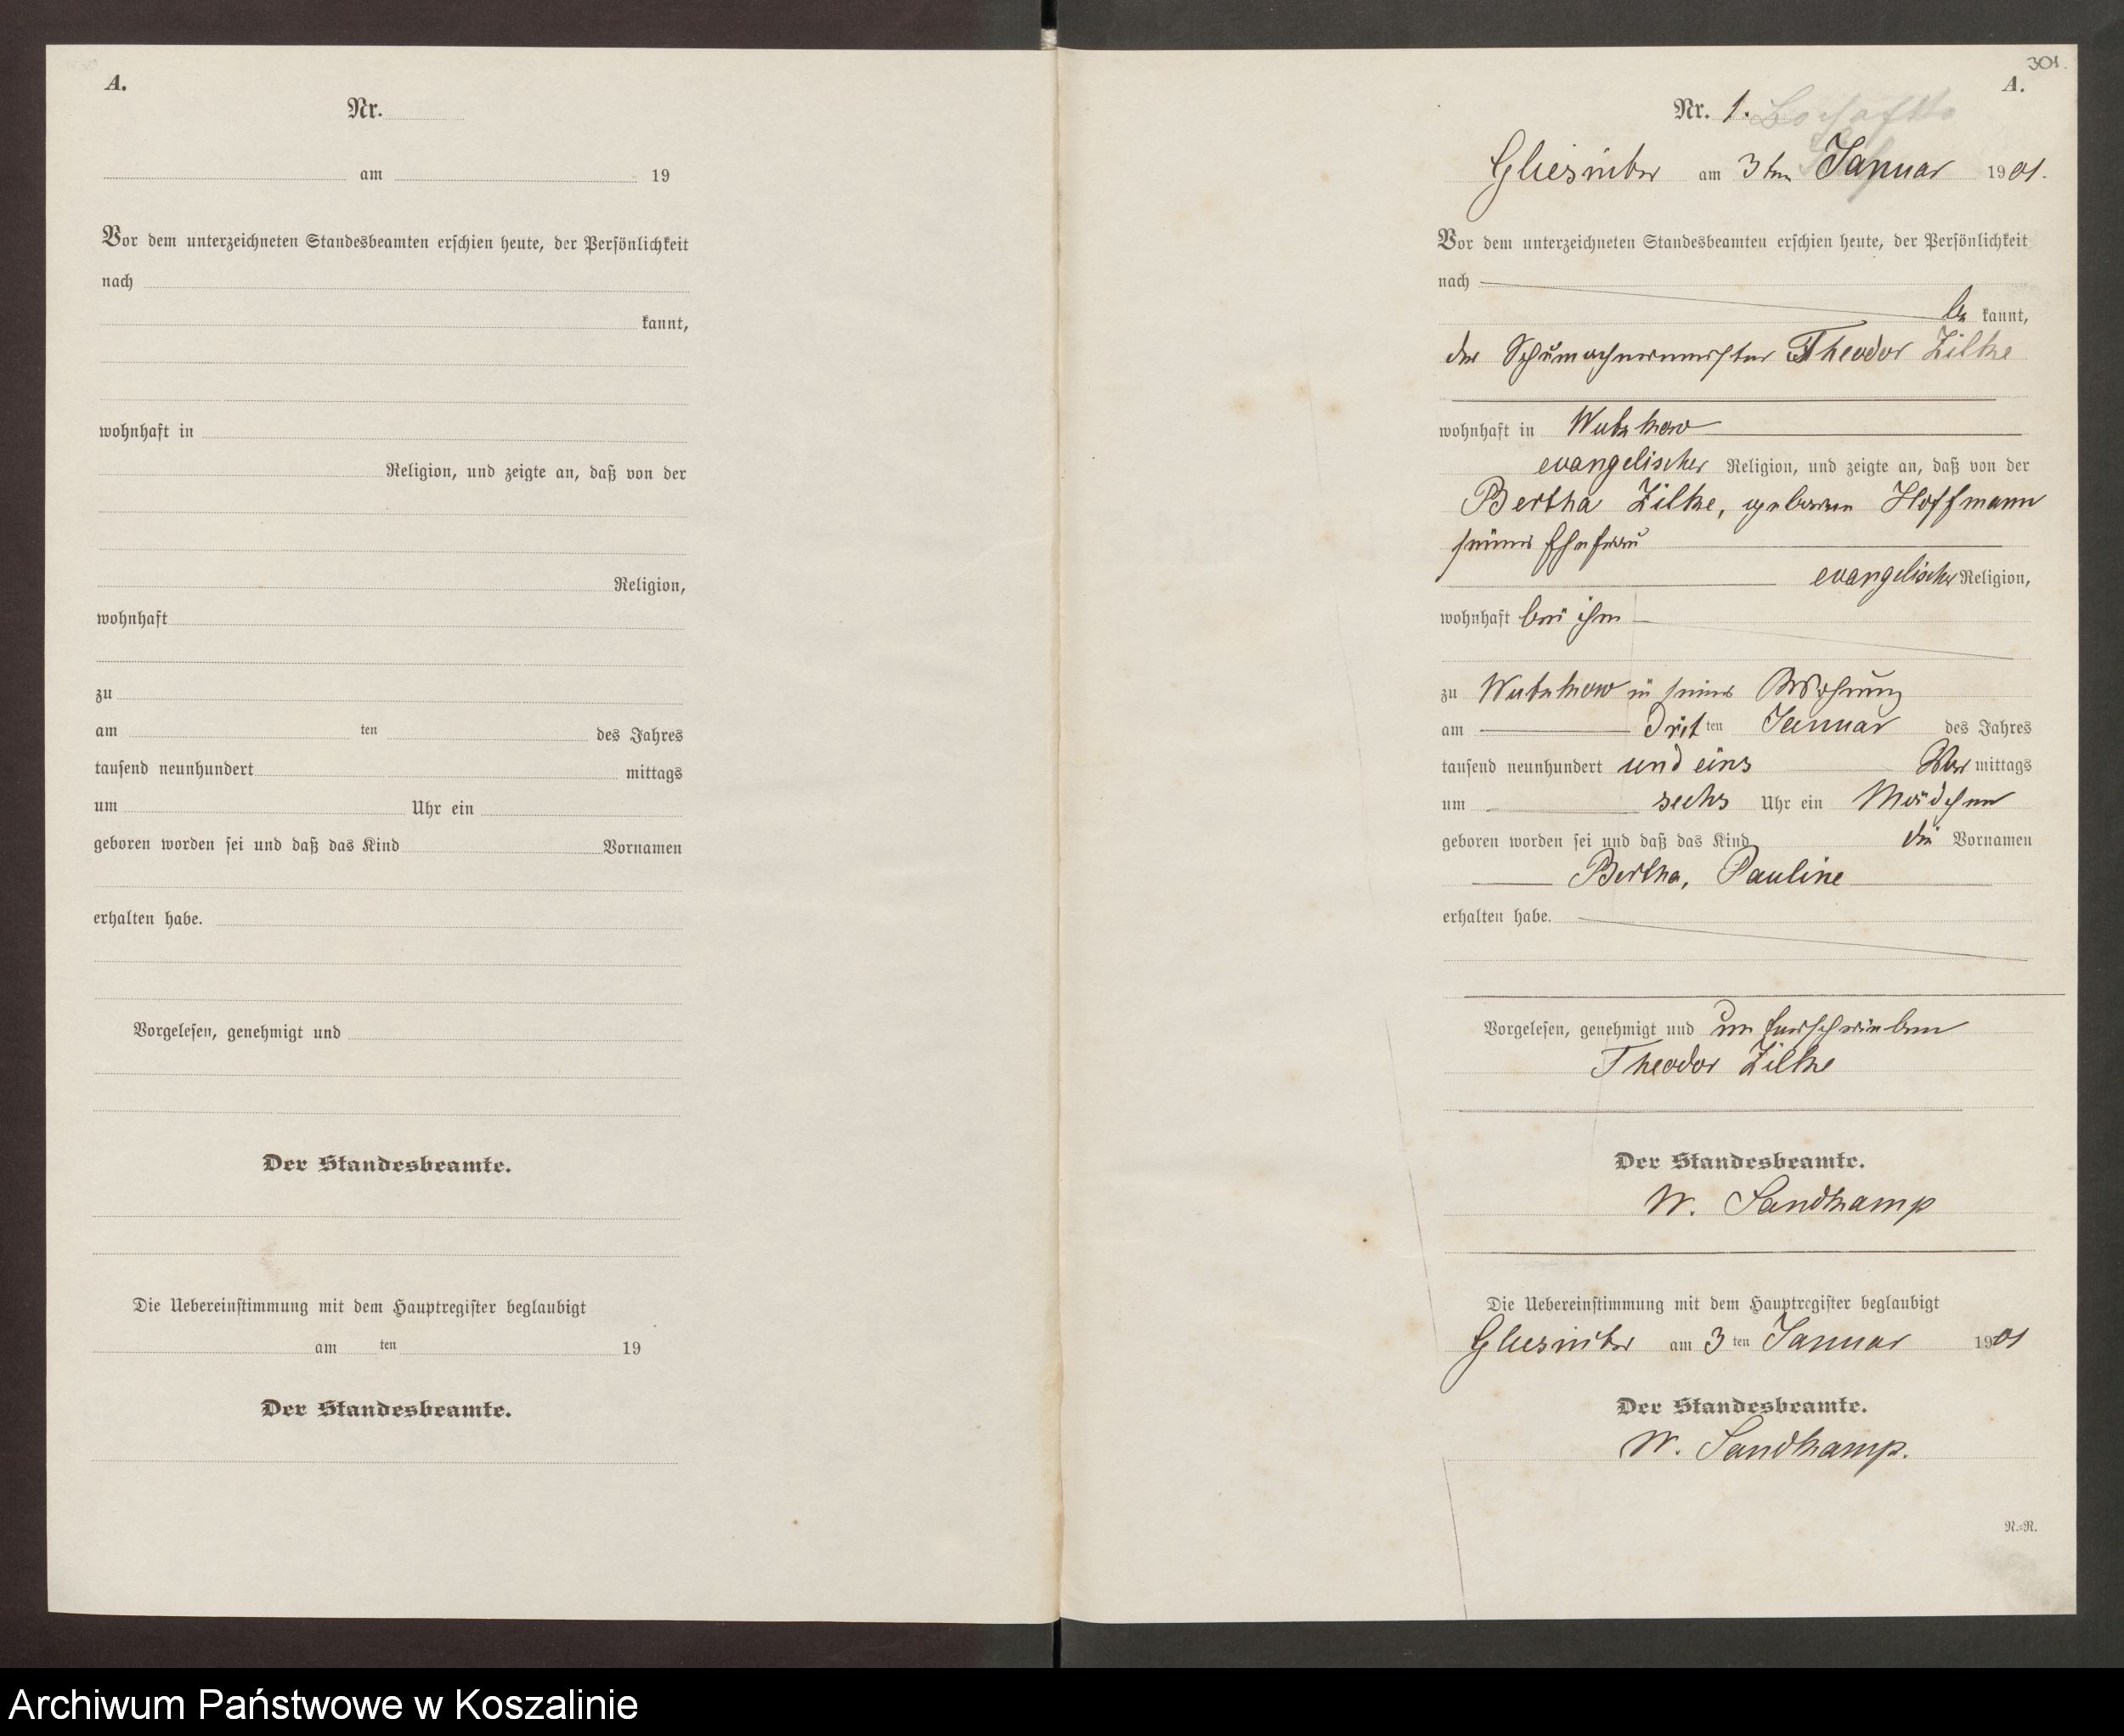 A.
Nr.
am 19
Vor dem unterzeichneten Standesbeamten erschien heute, der Persönlichkeit
nach
kannt,
wohnhaft in
Religion, und zeigte an, daß von der
Religion,
wohnhaft
zu
am ten des Jahres
tausend neunhundert mittags
um Uhr ein
geboren worden sei und daß das Kind Vornamen
erhalten habe.
Vorgelesen, genehmigt und
Der Standesbeamte.
Die Uebereinstimmung mit dem Hauptregister beglaubigt
am ten 19
Der Standesbeamte.
301.
A.
Nr. 1.
Gliesnitz am 3ten Januar 1901.
Vor dem unterzeichneten Standesbeamten erschien heute, der Persönlichkeit
nach
be kannt,
der Schumachermeister Theodor Zilke
wohnhaft in Wutzkow
evangelischer Religion, und zeigte an, daß von der
Bertha Zilke, geboren Hoffmann
seiner Ehefrau
evangelischer Religion,
wohnhaft bei ihm
zu Wutzkow in seiner Wohnung
am Drit ten Januar des Jahres
tausend neunhundert und eins Vor mittags
um sechs Uhr ein Mädchen
geboren worden sei und daß das Kind die Vornamen
Bertha, Pauline
erhalten habe.
Vorgelesen, genehmigt und unterschrieben
Theodor Zilke
Der Standesbeamte.
W. Sandkamp
Die Uebereinstimmung mit dem Hauptregister beglaubigt
Gliesnitz am 3 ten Januar 1901
Der Standesbeamte.
W. Sandkamp.
N.=N.
Archiwum Państwowe w Koszalinie